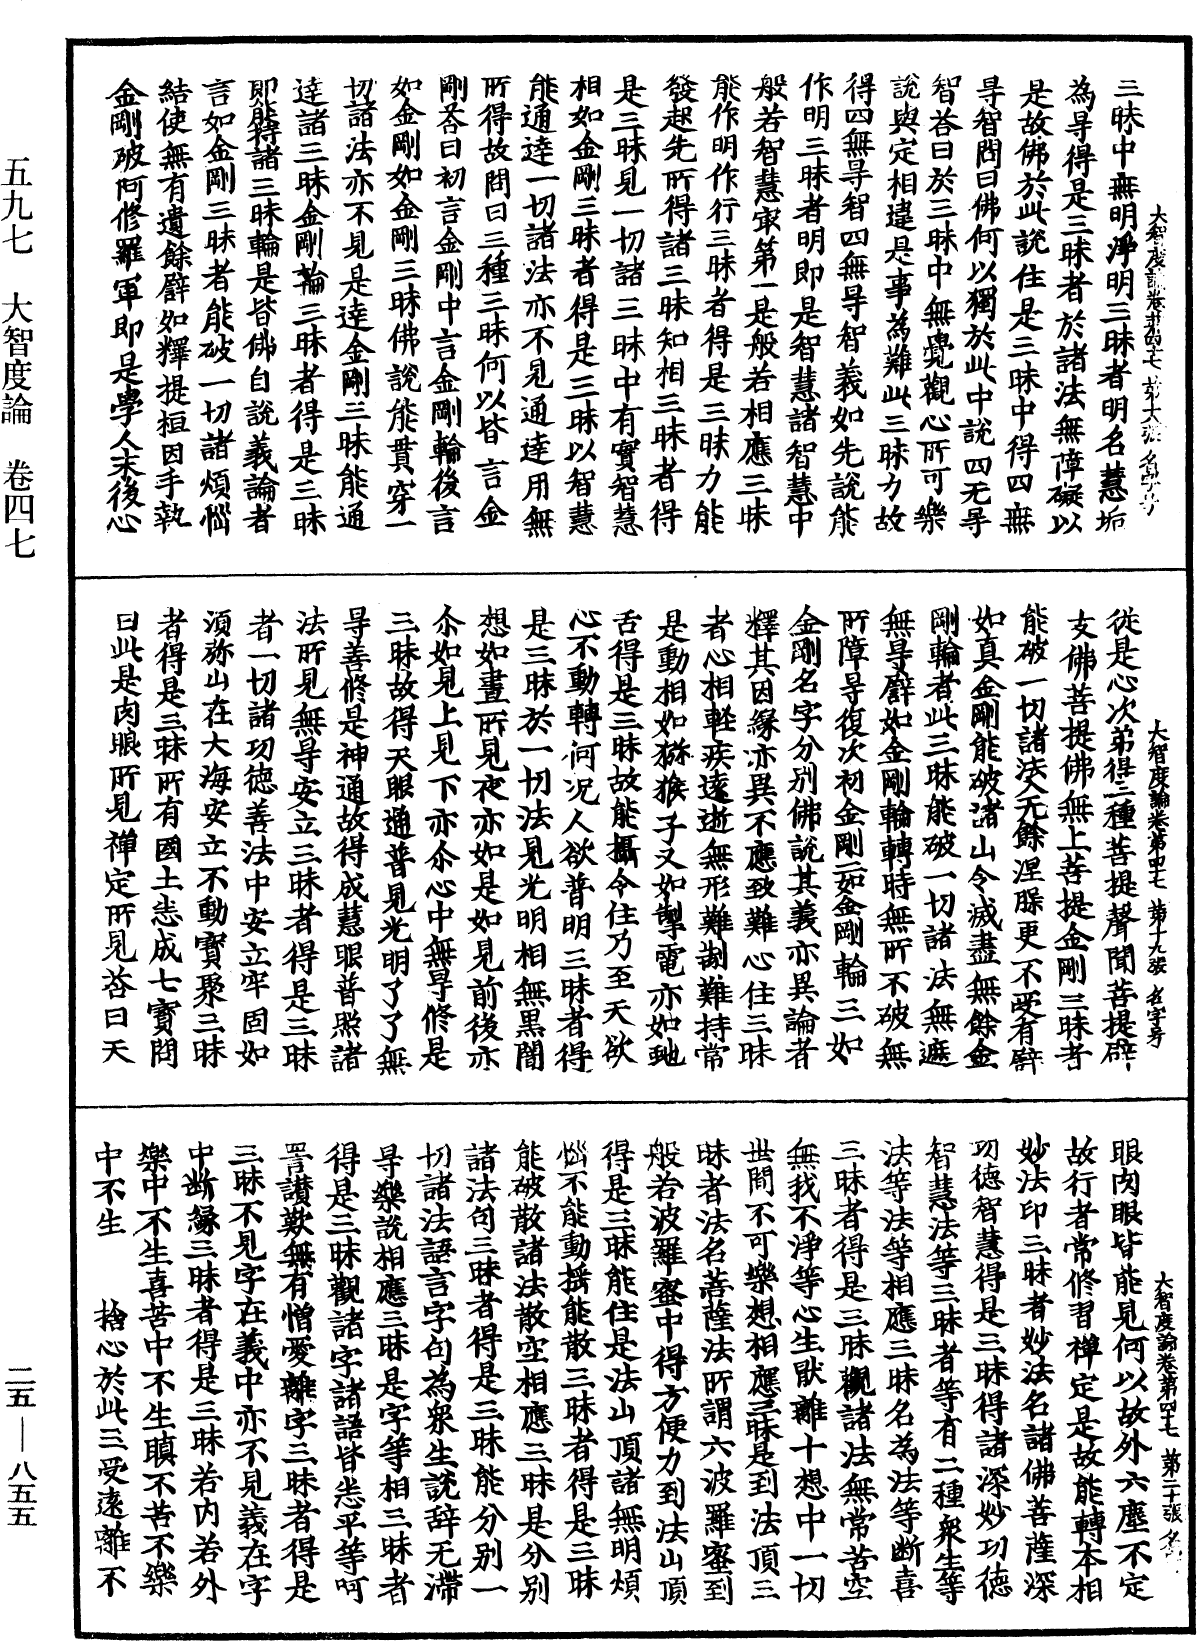 三昧中無明淨明三昧者明名慧垢
為㝵得是三昧者於諸法無障礙以
是故佛於此說住是三昧中得四無
㝵智問曰佛何以獨於此中說四无㝵
智荅曰於三昧中無覺觀心所可樂
說與定相違是事為難此三昧力故
得四無㝵智四無㝵智義如先說能
作明三昧者明即是智慧諸智慧中
般若智慧㝡第一是般若相應三昧
能作明作行三昧者得是三昧力能
發起先所得諸三昧知相三昧者得
是三昧見一切諸三昧中有實智慧
相如金剛三昧者得是三昧以智慧
能通達一切諸法亦不見通達用無
所得故問曰三種三昧何以皆言金
剛荅曰初言金剛中言金剛輪後言
如金剛如金剛三昧佛說能貫穿一
切諸法亦不見是達金剛三昧能通
達諸三昧金剛輪三昧者得是三昧
即能持諸三昧輪是皆佛自說義論者
言如金剛三昧者能破一切諸煩惱
結使無有遺餘譬如釋提桓因手執
金剛破阿修羅軍即是學人末後心
大智度論卷第四十七 第十九張 名字号
從是心次弟得三種菩提聲聞菩提辟
支佛菩提佛無上菩提金剛三昧者
能破一切諸法入无餘涅槃更不受有譬
如真金剛能破諸山令滅盡無餘金
剛輪者此三昧能破一切諸法無遮
無㝵譬如金剛輪轉時無所不破無
所障㝵復次初金剛二如金剛輪三如
金剛名字分別佛說其義亦異論者
釋其因緣亦異不應致難心住三昧
者心相軽疾遠逝無形難制難持常
是動相如猕猴子又如掣電亦如虵
舌得是三昧故能攝令住乃至天欲
心不動轉何況人欲普明三昧者得
是三昧於一切法見光明相無黑闇
想如晝所見夜亦如是如見前後亦
尒如見上見下亦尒心中無㝵修是
三昧故得天眼通普見光明了了無
㝵善修是神通故得成慧眼普照諸
法所見無㝵安立三昧者得是三昧
者一切諸功德善法中安立牢固如
須弥山在大海安立不動寶聚三昧
者得是三昧所有國土悉成七寶問
曰此是肉眼所見禪定所見荅曰天
大智度論卷第四十七 第二十張
眼肉眼皆能見何以故外六塵不定
故行者常修習禪定是故能轉本相
妙法印三昧者妙法名諸佛菩薩深
功德智慧得是三昧得諸深妙功德
智慧法等三昧者等有二種衆生等
法等法等相應三昧名為法等断喜
三昧者得是三昧觀諸法無常苦空
無我不淨等心生猒離十想中一切
世間不可樂想相應三昧是到法頂三
昧者法名菩薩法所謂六波羅蜜到
般若波羅蜜中得方便力到法山頂
得是三昧能住是法山頂諸無明煩
惱不能動搖能散三昧者得是三昧
能破散諸法散空相應三昧是分別
諸法句三昧者得是三昧能分別一
切諸法語言字句為衆生說辞无滯
㝵樂說相應三昧是字等相三昧者
得是三昧觀諸字諸語皆悉平等呵
罵讃歎無有憎愛離字三昧者得是
三昧不見字在義中亦不見義在字
中断緣三昧者得是三昧若内若外
樂中不生喜苦中不生瞋不苦不樂
中不生 捨心於此三受遠離不
五九七 大智度論 卷四七
二五—八五五